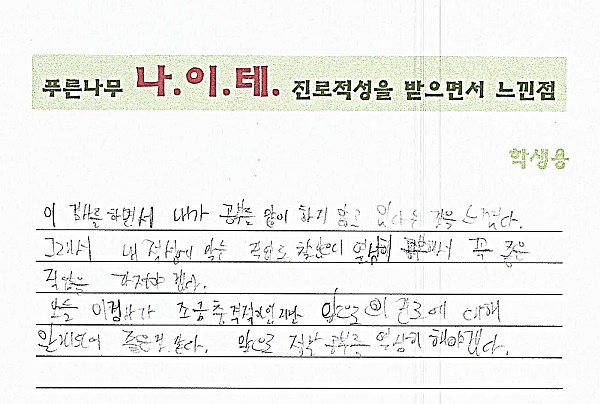 푸른나무 나.이.테. 진로적성을 받으면서 느낀점
학생용
이 검사를 하면서 내가 공부를 많이 하지 않고 있다는 것을 느꼈다.
그래서 내 적성에 맞는 직업도 열심히 해서 꼭 좋은
직업을 가져야 겠다.
오늘 이검사가 조금 충격적이었지만 앞으로의 진로에 대해
알게되어 좋은것 같다. 앞으로 공부를 열심히 해야겠다.